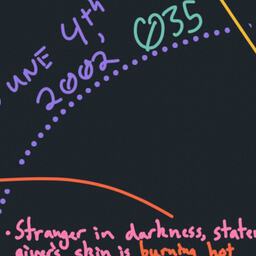 UNE 4th
2002, 0035
• Stranger in darkness, state
giver's skin is burning hot